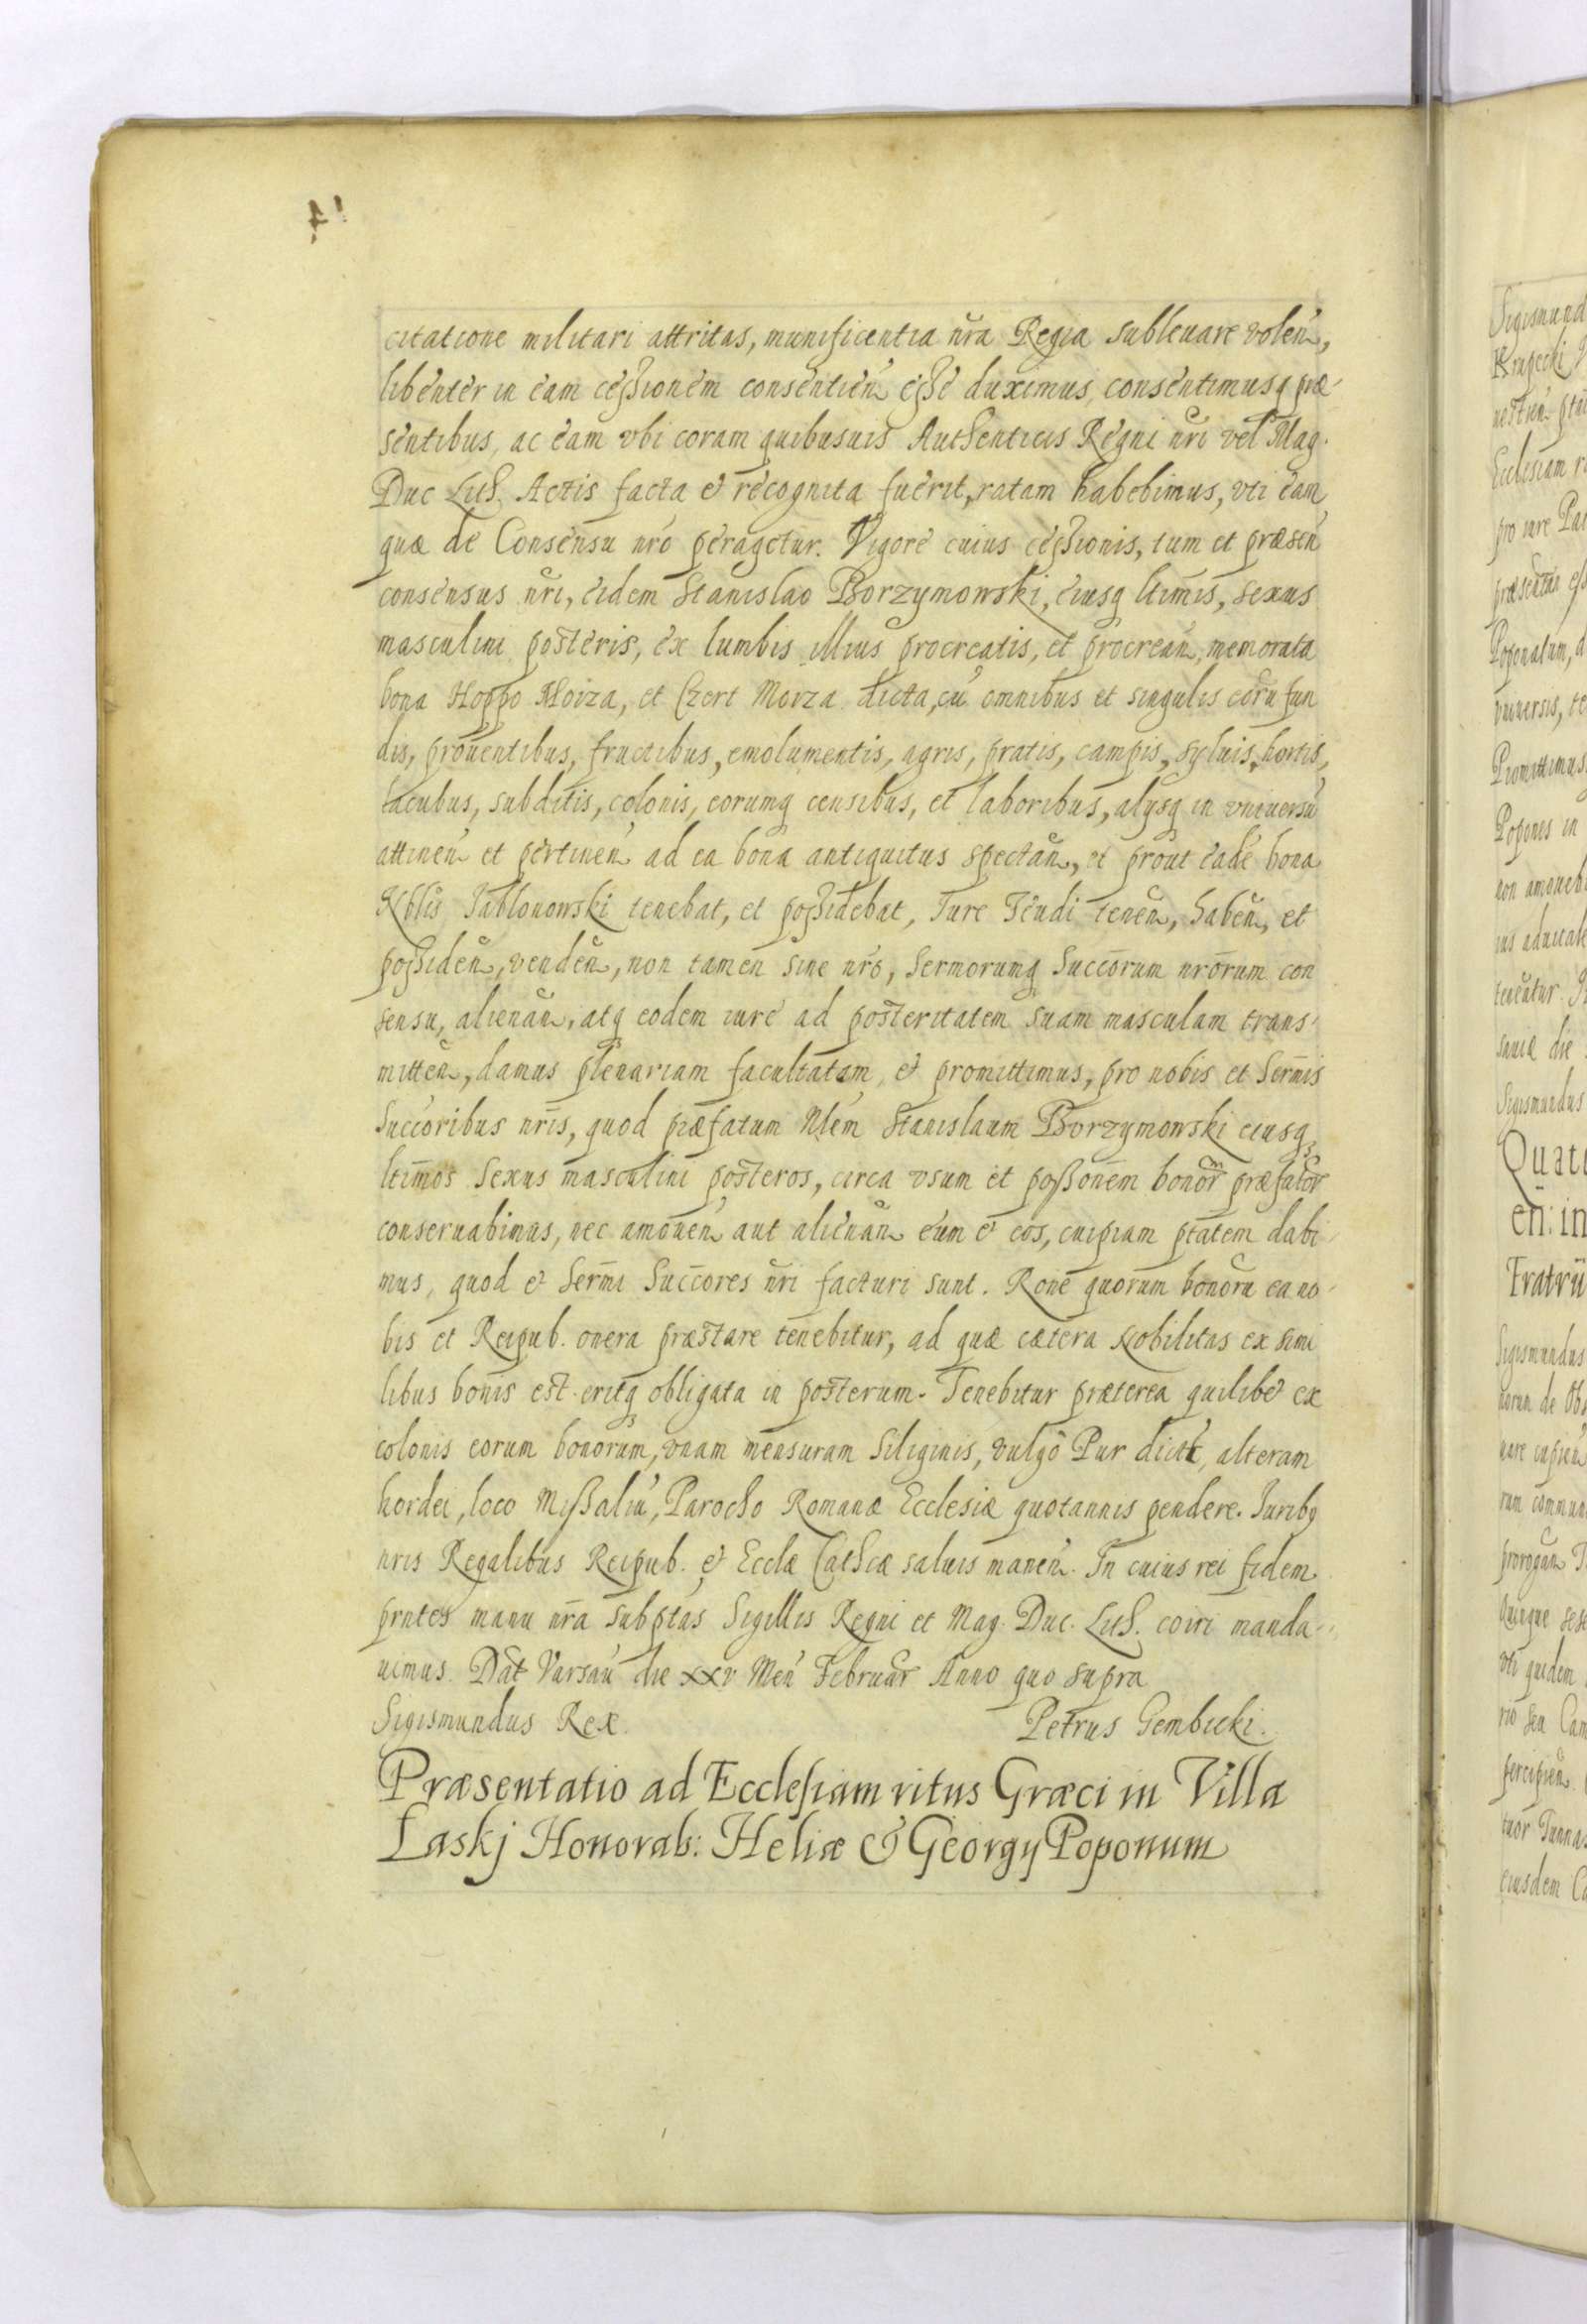 citatione militari attritas, munificentia nr̃a Regia subleuare volen̄,
libenter in eam ceßionem consentien̄ eße duximus, consentimusq́ præ-
sentibus, ac eam vbi coram quibusuis Authenticis Regni nr̃i vel Mag.
Duc Lith. Actis facta et recognita fuerit, ratam habebimus, vti eam
quæ de Consensu nr̃o peragetur. Vigore cuius ceßionis, tum et præsen̄
consensus nr̃i, eidem Stanislao Borzymowski, eiusq́ ltimis, sexus
masculini posteris, ex lumbis illius procreatis, et procrean̄, memorata
bona Hoppo Moiza, et Czert Moiza dicta, cū omnibus et singulis eorū fun
dis, prouentibus, fructibus, emolumentis, agris, pratis, campis, syluis, hortis,
lacubus, subditis, colonis, eorumq́ censibus, et laboribus, alysq́ in vniuersū
attinen̄ et pertinen̄ ad ea bona antiquitus spectan̄, et prout eadē bona
Nblis Jablonowski tenebat, et poßidebat, Iure Feudi tenen̄, haben̄, et
poßiden̄, venden̄, non tamen sine nr̃o, Sermorumq́ Succorum nr̃orum con
sensu, alienan̄, atq́ eodem iure ad posteritatem suam masculam trans-
mitten̄, damus plenariam facultatem, et promittimus, pro nobis et Sermis
Succoribus nr̃is, quod præfatum Nlem Stanislaum Borzymowski eiusq́
ltimos Sexus masculini posteros, circa vsum et poßonem bonor præfator
conseruabimus, nec amouen̄ aut alienan̄ eum et eos, cuipiam ptatem dabi-
mus, quod et Sermi Succores nr̃i facturi sunt. Rone quorum bonorū ea no-
bis et Reipub. onera præstare tenebitur, ad quæ cætera Nobilitas ex simi
libus bonis est eritq́ obligata in posterum. Tenebitur præterea quilibet ex
colonis eorum bonorum, vnam mensuram Siliginis, vulgò Pur dictæ, alteram
hordei, loco Mißaliū, Parocho Romanæ Ecclesiæ quotannis pendere. Juribq
nris Regalibus Reipub. et Ecclæ Cathcæ saluis manen̄. In cuius rei fidem
prntes manu nr̃a subptas Sigillis Regni et Mag. Duc. Lith. coiri manda-
uimus. Dat Varsau die xxv Men̄ Februar Anno quo supra
Sigismundus Rex. Petrus Gembicki.
Præsentatio ad Ecclesiam ritus Græci in Villa
Laskj Honorab: Heliæ & Georgy Poponum